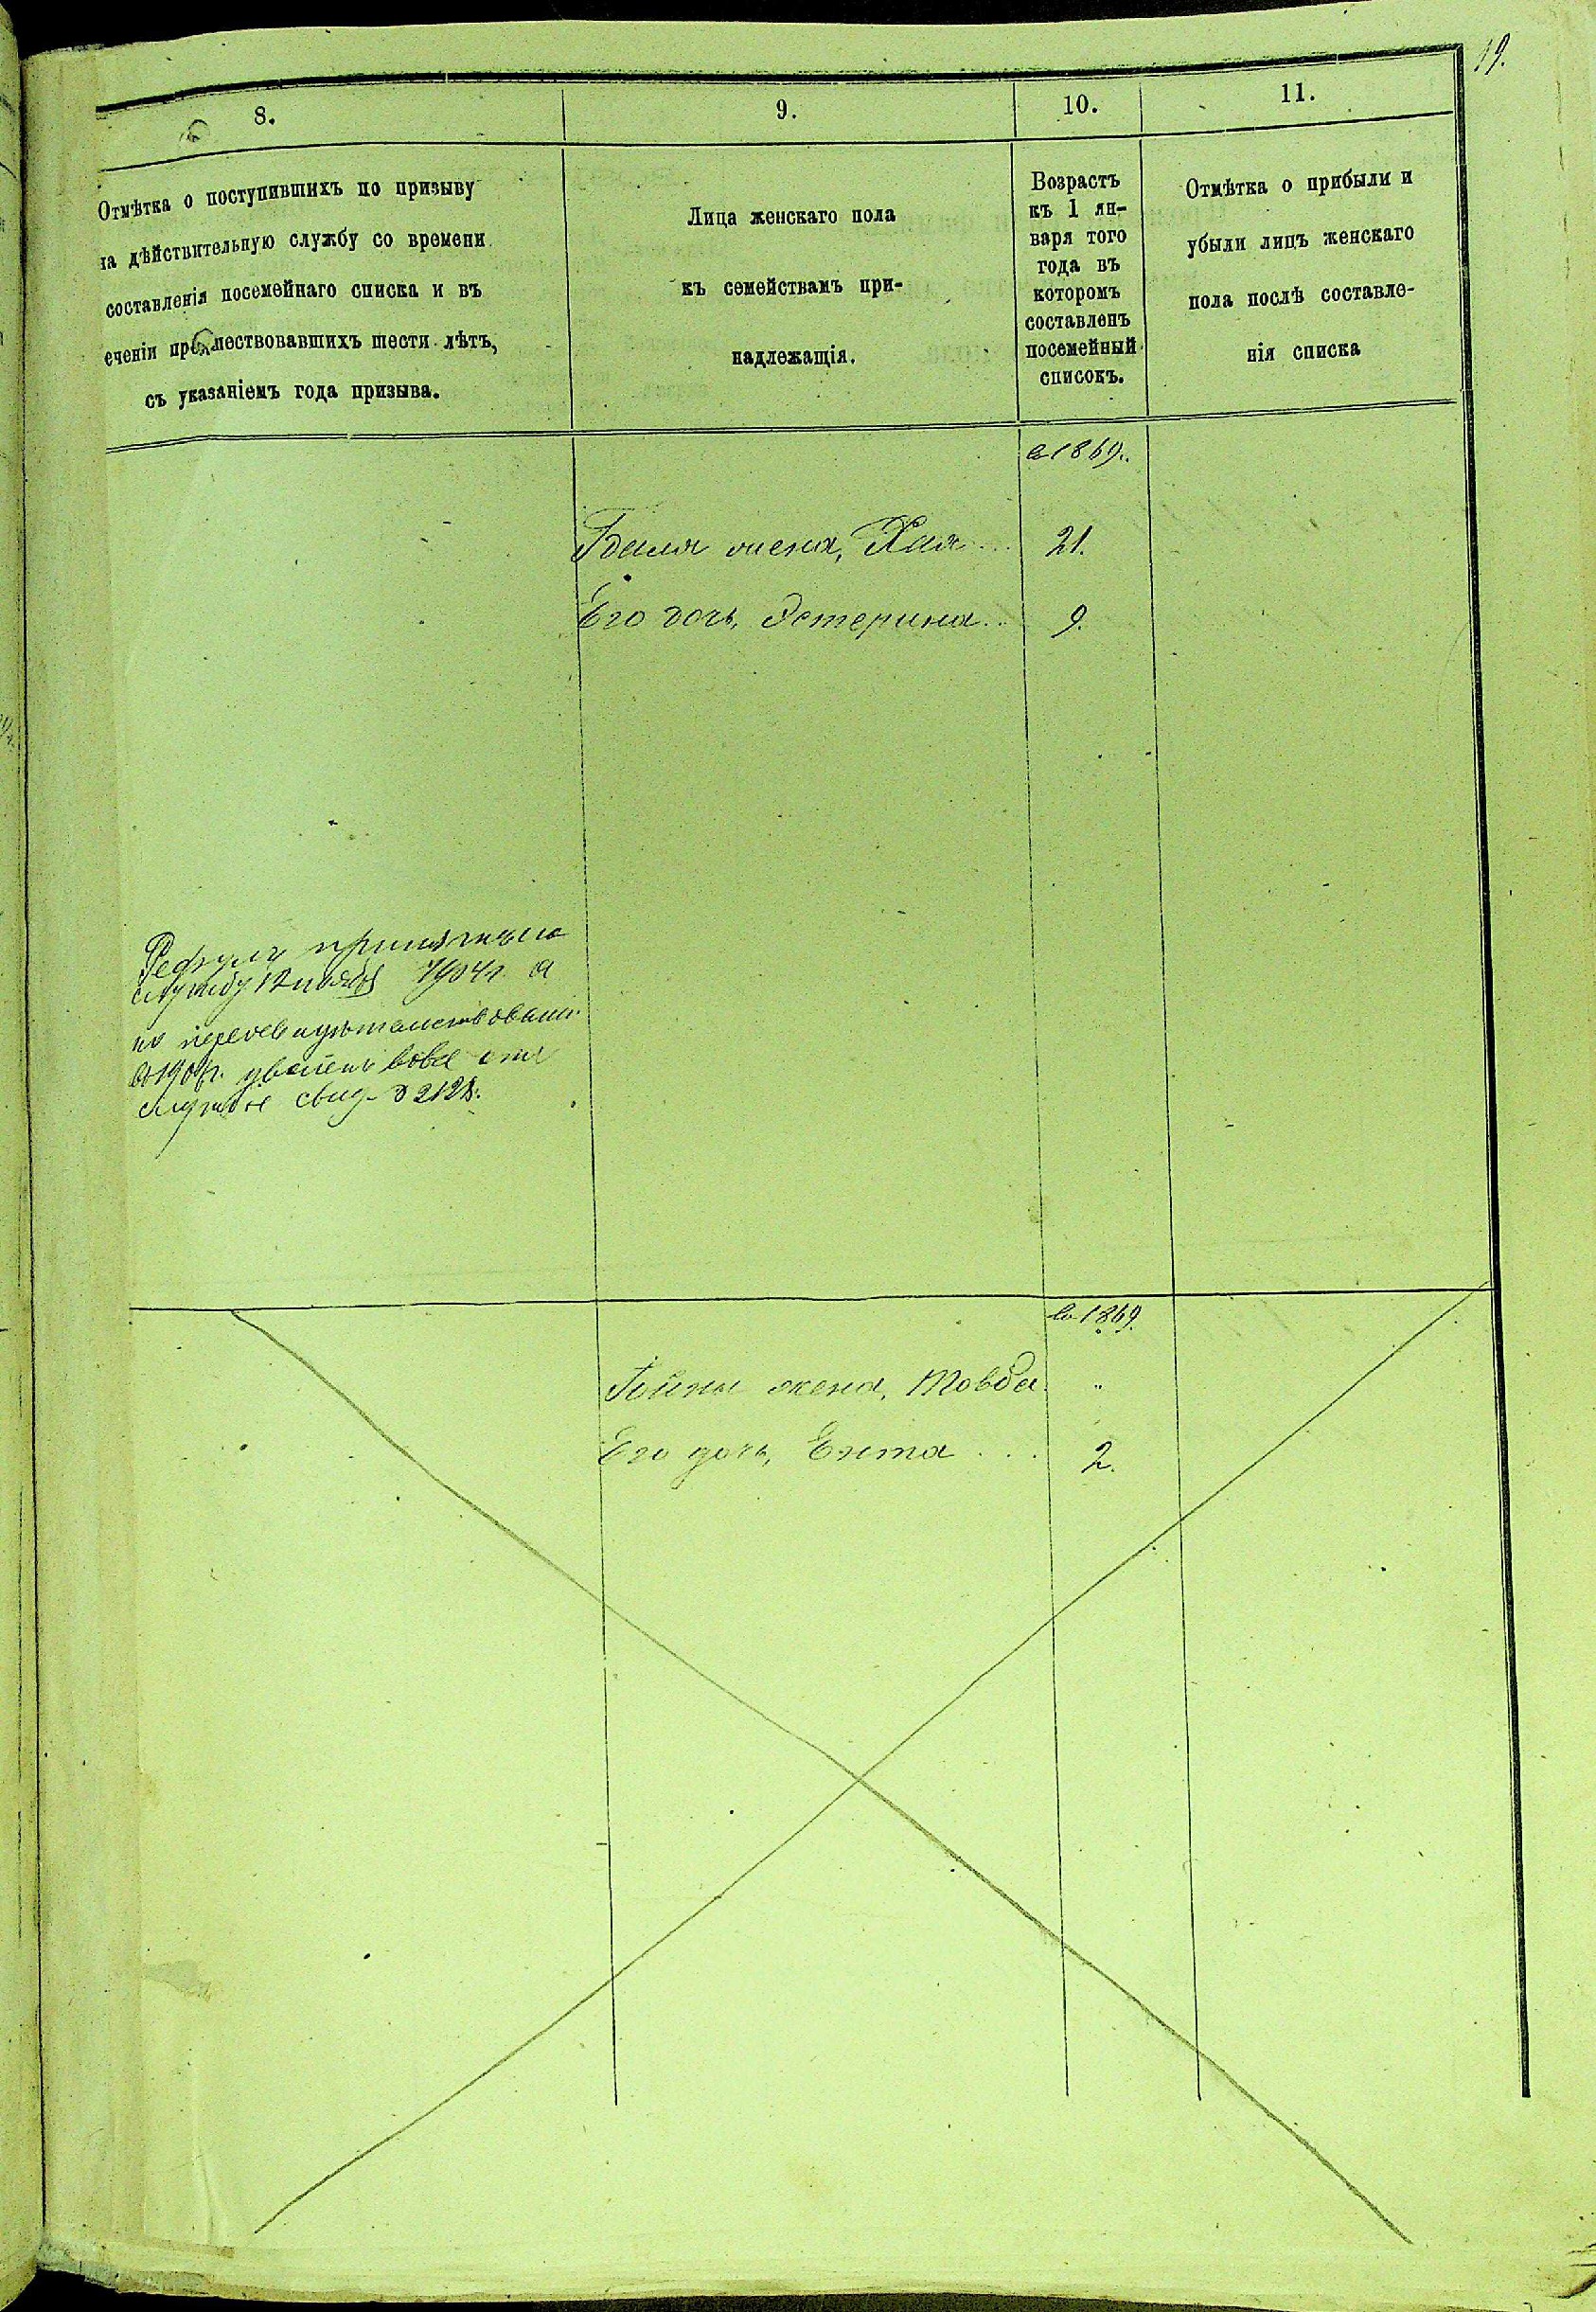 19.
8.
9.
10.
11.
Отмѣтка о поступившихъ по призыву
на дѣйствительную службу со времени
составленія посемейнаго списка и въ
еченіи предшествовавшихъ шести лѣтъ,
съ указаніемъ года призыва.
Лица женскаго пола
къ семействамъ при-
надлежащія.
Возрастъ
къ 1 ян-
варя того
года въ
которомъ
составленъ
посемейный
списокъ.
Отмѣтка о прибыли и
убыли лицъ женскаго
пола послѣ составле-
нія списка
в 1869.
жена, Хая 21.
Его дочь, Эстерина 9.
принятъ на
службу 12 ноября 1904 г. а
по переосвидѣтельствованіи
уволенъ вовсе отъ
службы свид. 2128.
в 1869.
жена, Товба "
Его дочь, Ента 2.